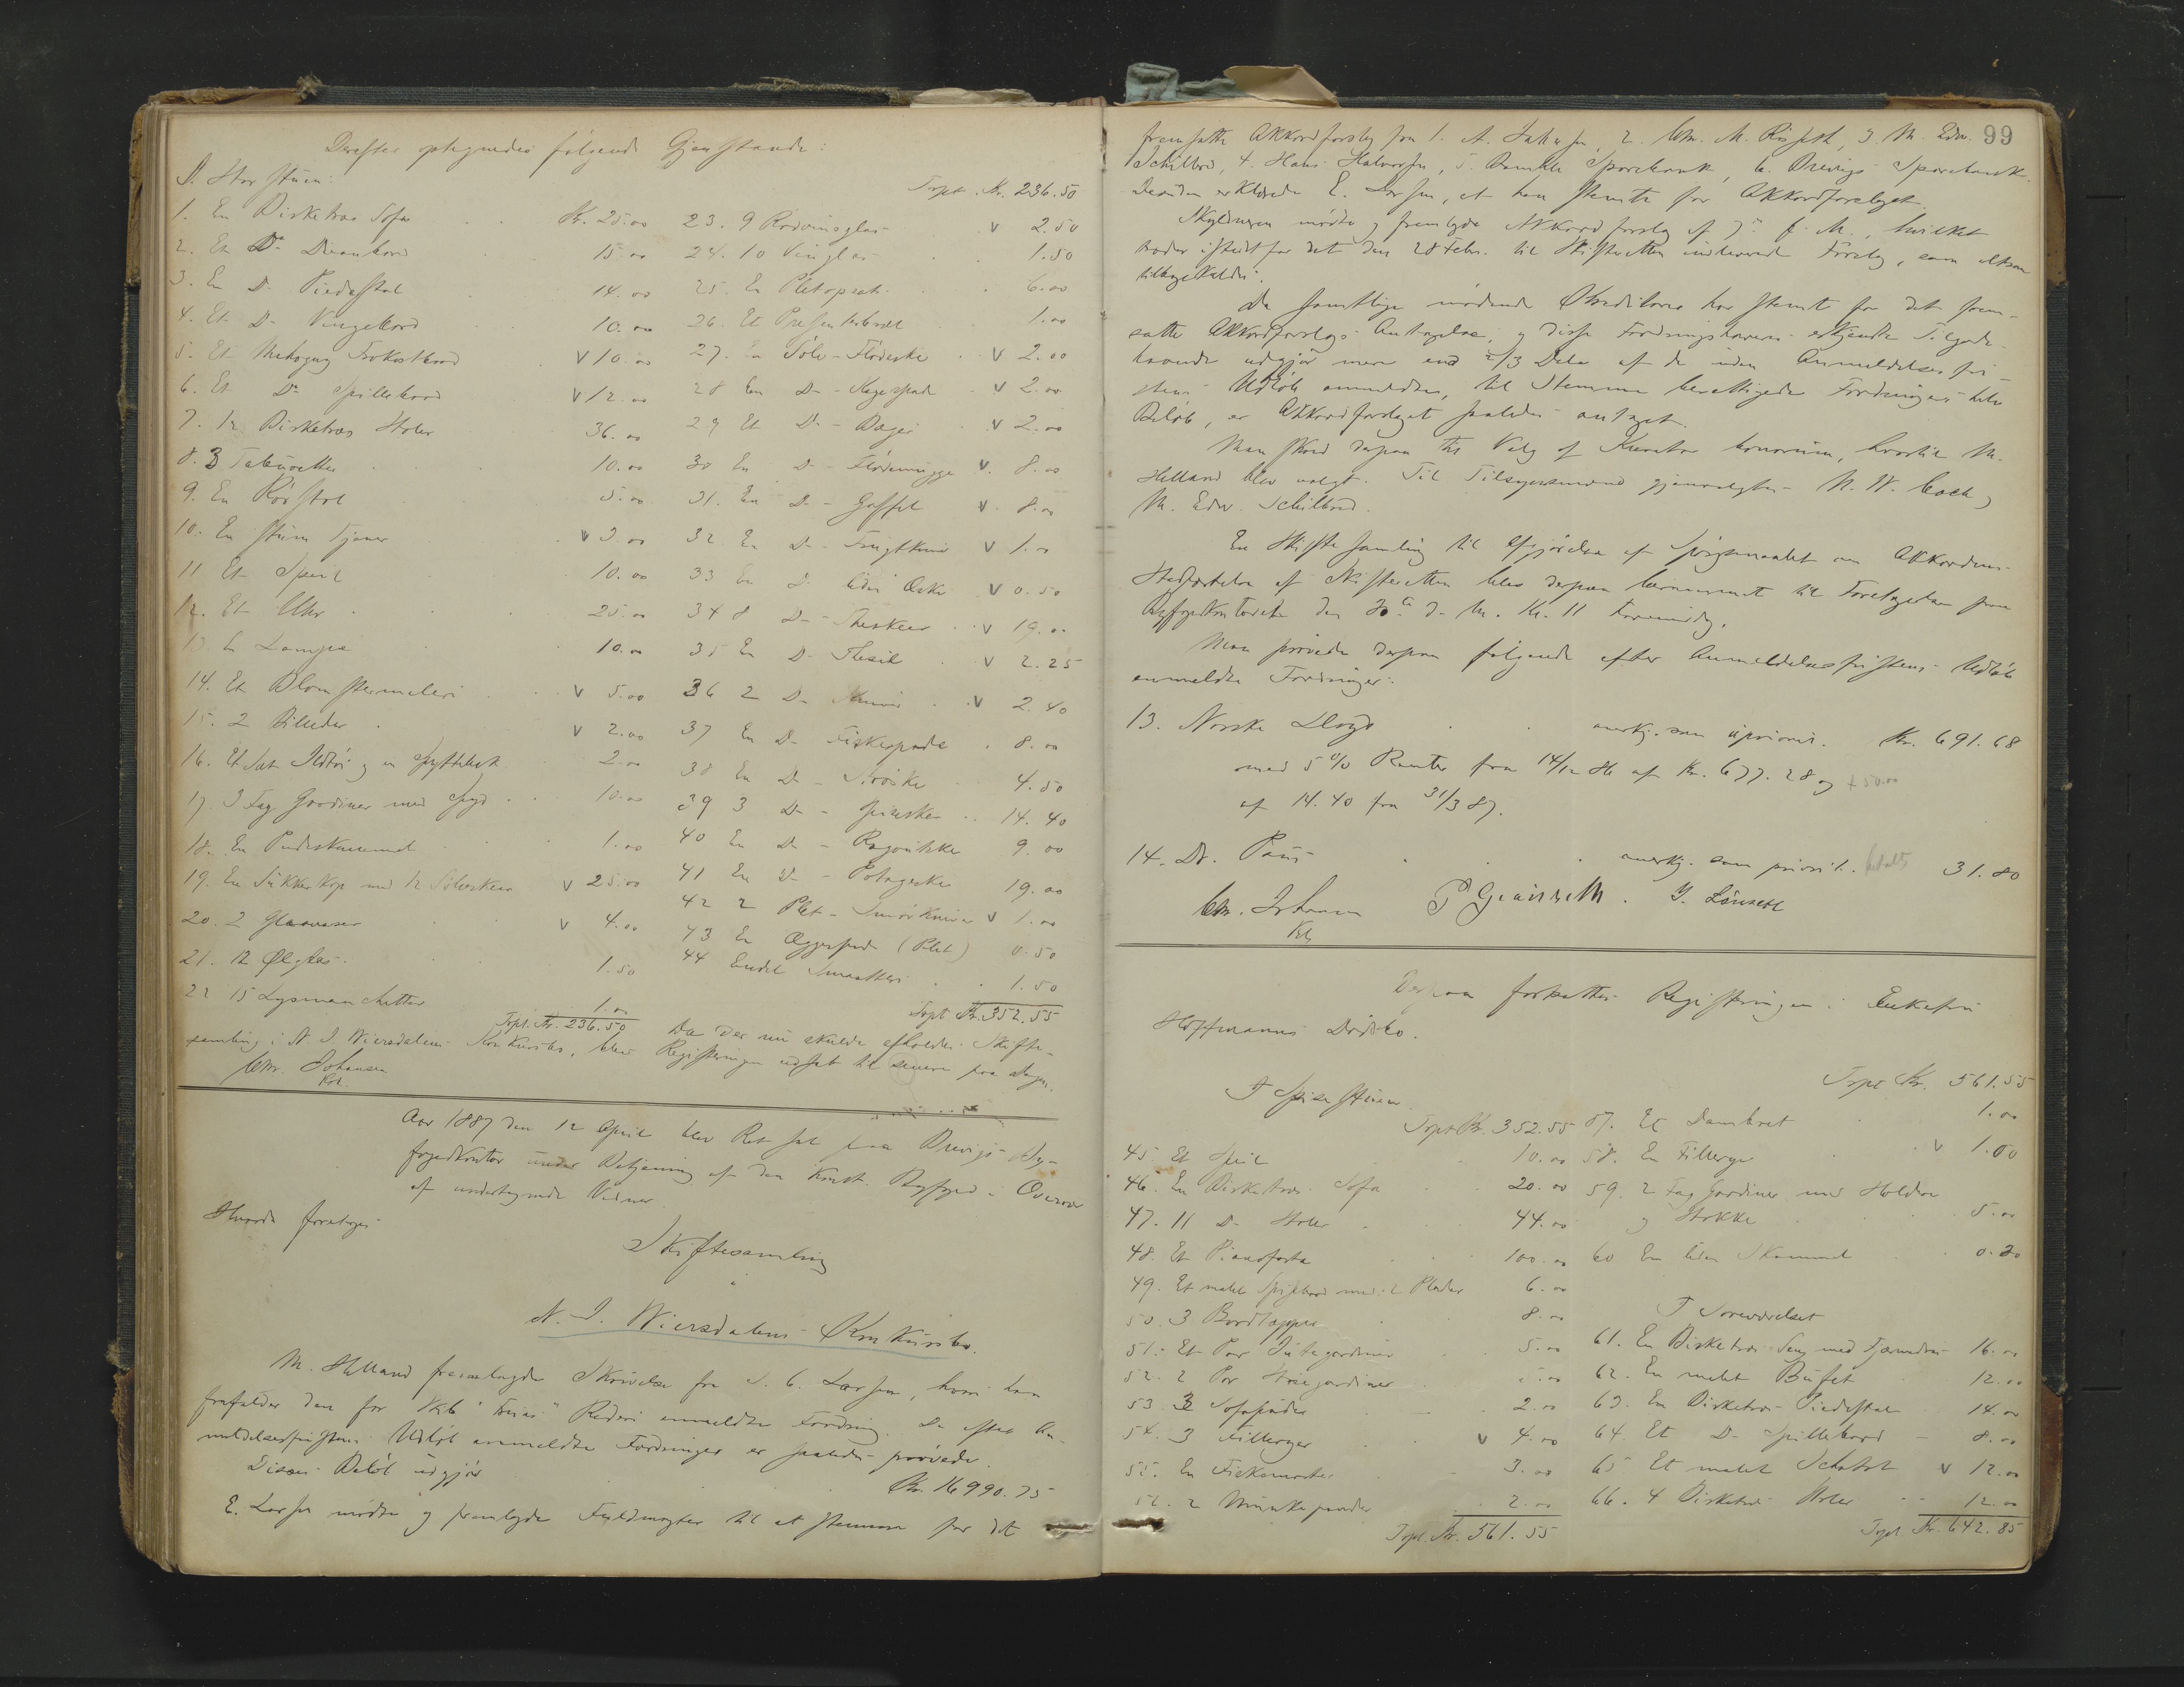 Derefter optegnedes følgende Gjenstande:
I Storstuen:
1. En Birketræs Sofa Kr. 25.00
2. Et Do Divanbord 15.00
3. En Do Piedestal 14.00
4. Et Do Vingebord 10.00
5. Et Mahogny Frokostbord v 10.00
6. Et Do Spillebord v 12.00
7. 12 Birketræs Stoler 36.00
8. 3 Tabouretter 10.00
9. En Rørstol 5.00
10. En stum Tjener v 3.00
11 Et Speil 10.00
12. Et Uhr 25.00
13. En Lampe 10.00
14. Et Blomstermaleri v 5.00
15. 2 Billeder v 2.00
16. Et Sæt Ildtøi og en Spyttebak 2.00
17. 3 Fag Gardiner med 10.00
18. En Pudeskammel 1.00
19. En Sukkerkop med 12 Sølvskeer v 25.00
20. 2 Glasvaser v 4.00
21. 12 Ølglas 1.50
22 15 Lysmanchetter 1.00
Trspt. Kr. 236.50
Trspt. Kr. 236.50
23. 9 Rødvinsglas v 2.50
24. 10 Vinglas 1.50
25. En Pletopsats 6.00
26. Et Presenterbræt 1.00
27. En Sølv-Flødeske v 2.00
28 En Do - Kagespade v 2.00
29 Et Do - Bæger v 2.00
30 En Do - Flødemugge v. 8.00
31. En Do - Gaffel v. 8.00
32. En Do - Frugtkniv v 1.00
33 En Do liden Æske v 0.50
34 8 Do - Theskeer v 19.00
35 En Do Thesil v 2.25
36 2 Do v 2.40
37 En Do - Fiskespade 8.00
38 En Do - Strøske 4.50
39 3 Do - Spiseskeer 14.40
40 En Do - Ragoutske 9.00
41 En Do - Potageske 19.00
42 2 Plet-Smørknive v 1.00
43 En Æggespade (Plet) 0.50
44 Endel Smaatteri 1.50
Trspt Kr. 352.55
Da der nu skulde afholdes Skifte-
samling i N. I. Wiersdalens Konkursbo, blev Registreringen udsat til senere paa Dagen.
Chr. Johansen
Kst.
Aar 1887 den 12 April blev Ret sat paa Brevigs By-
fogedkontor under Betjening af den konst. Byfoged i Overvær
af undertegnede Vidner
Hvorda foretoges
Skiftesamling
i
N. I. Wiersdalens Konkursbo.
M. Helland fremlagde Skrivelse fra S. C. Larsen, hvori han
frafalder den for Skib " " Rederi anmeldte Fordring. De efter An-
meldelsesfristens Udløb anmeldte Fordringer er saaledes prøvede.
Disses Beløb udgjør Kr. 16990.75
E. Larsen mødte og fremlagde Fuldmagter til at stemme for det
99
fremsatte Akkordforslag fra 1. A. , 2. Chr. M. , 3. M. Edv.
Schilbred, 4. Hans Halvorsen, 5. Bamble Sparebank, 6. Brevigs Sparebank.
Desuden erklærede E. Larsen, at han stemte for Akkordforslaget.
Skyldneren mødte og fremlagde Akkordforslag af f. M., hvilket
træder istedetfor det den 28 Febr. til Skifteretten indleverede Forslag, som altsaa
tilbagekaldes.
Da samtlige mødende Kreditorer har stemt for det frem-
satte Akkordforslags Antagelse, og disse Fordringshaveres erkjendte Tilgode-
havende udgjør mere end 2/3 Dele af de inden Anmeldelsesfri-
stens Udløb anmeldte, til Stemme berettigede Fordringers hele
Beløb, er Akkordforslaget saaledes antaget.
Man skred derpaa til Valg af Kurator bonorum, hvortil M.
Helland blev valgt. Til Tilsynsmænd gjenvalgtes N. W. Coch og
M. Edv. Schilbred.
En Skiftesamling til Afgjørelse af Spørgsmaalet om Akkordens
Stadfæstelse af Skifteretten blev derpaa berammet til Foretagelse paa
Byfogedkontoret den 30te d. M. Kl. 11 Formiddag.
Man prøvede derpaa følgende efter Anmeldelsesfristens Udløb
anmeldte Fordringer:
13. Norske Lloyd anerkj. som uprior. Kr. 691.68
med 5 % Renter fra 14/12 86 af Kr. 677.28 og + 50.00
af 14.40 fra 31/3 87.
14. Dr. Paus anerkj. som priorit. betalt 31.80
Chr. Johansen
Kst.
Derpaa fortsattes Registreringen i Enkefru
Hoffmanns Dødsbo.
I Spisestuen
Trspt Kr. 352.55
45. Et Speil 10.00
46. En Birketræs Sofa 20.00
47. 11 Do Stoler 44.00
48. Et Pianoforte 100.00
49. Et malet Spisebord med 2 Plader 6.00
50. 3 Bordtæpper 8.00
51. Et Par Jutegardiner 5.00
52. 2 Par gardiner
53. 3 Sofapuder 2.00
54. 3 Filleryer v 4.00
55. En 3.00
56. 2 2.00
Trspt. Kr. 561.55
Trspt Kr. 561.55
57. Et Dambret 1.00
58. En Fillerye v 1.00
59. 2 Fag Gardiner med Holdere
og Stokke 5.00
60 En liden Skammel 0.30
I Soveværelset
61. En Birketræs Seng med Fjærmadras 16.00
62. En malet Bufet 12.00
63. En Birketræs Piedestal 14.00
64. Et Do Spillebord 8.00
65 Et malet Schatol v 12.00
66. 4 Birketræs Stoler 12.00
Trspt. Kr. 642.85